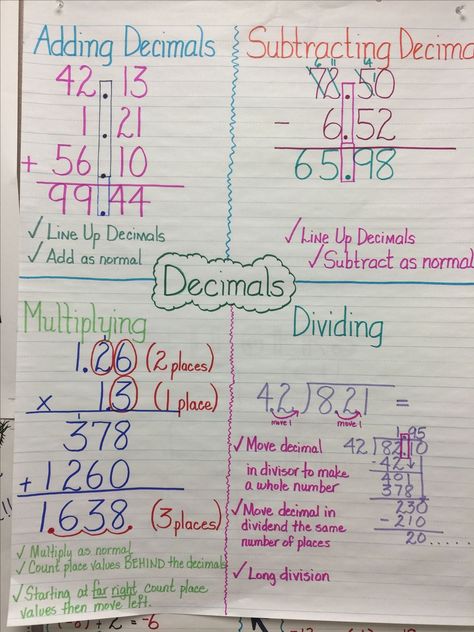 Adding Decimals
42.13
1.21
+ 56.10
99.44
✓ Line Up Decimals
✓ Add as normal
Subtracting Decima
6 11 14 1
78.50
- 6.52
65.98
✓ Line Up Decimals
✓ Subtract as normal
Decimals
Multiplying
1.26 (2 places)
x 1.3 (1 place)
378
+ 1260
1.638 (3 places)
✓ Multiply as normal
✓ Count place values BEHIND the decimals
✓ Starting at far right, count place
values then move left.
Dividing
4.2 ) 8.21 =
move 1 move 1
✓ Move decimal
in divisor to make
a whole number
✓ Move decimal in
dividend the same
number of places
✓ Long division
1.95
42 ) 82.10
- 42
401
378
230
- 210
20 .....
+ 2 = -6